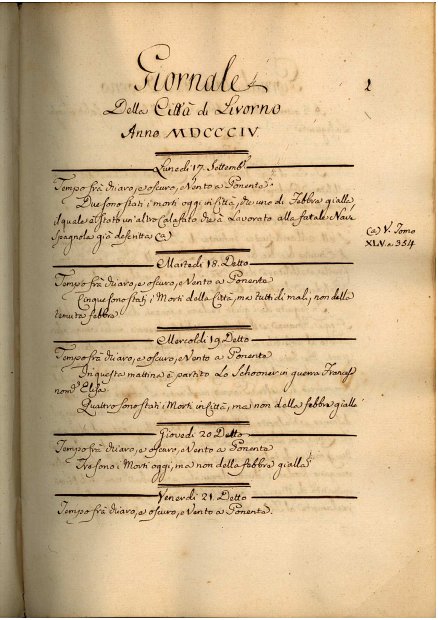 Giornale
1
Della Città di Livorno
Anno MDCCCIV.
Lunedì 17. Settemb.
Tempo frà chiaro, e oscuro, e Vento a Ponente.
Due sono stati i morti oggi in Città, che uno di Febbre gialla
il quale è stato un'altro Calafato che à Lavorato alla fatale Nave
Spagnola già descritta (a)
(a) V. Tomo
XLV. a 354
Martedì 18. Detto
Tempo frà chiaro, e oscuro, e Vento a Ponente
Cinque sono stati i Morti della Città, ma tutti di mali, non della
temuta febbre
Mercoldì 19 Detto
Tempo frà chiaro, e oscuro, e Vento a Ponente
In questa mattina è partito Lo Schooner in guerra Frances
nom. Elisa
Quattro sono stati i Morti in Città, ma non della febbre gialla
Giovedì 20 Detto
Tempo frà chiaro, e oscuro, e Vento a Ponente
Tre sono i Morti oggi, ma non della febbre gialla
Venerdì 21. Detto
Tempo frà chiaro, e oscuro, e Vento a Ponente.